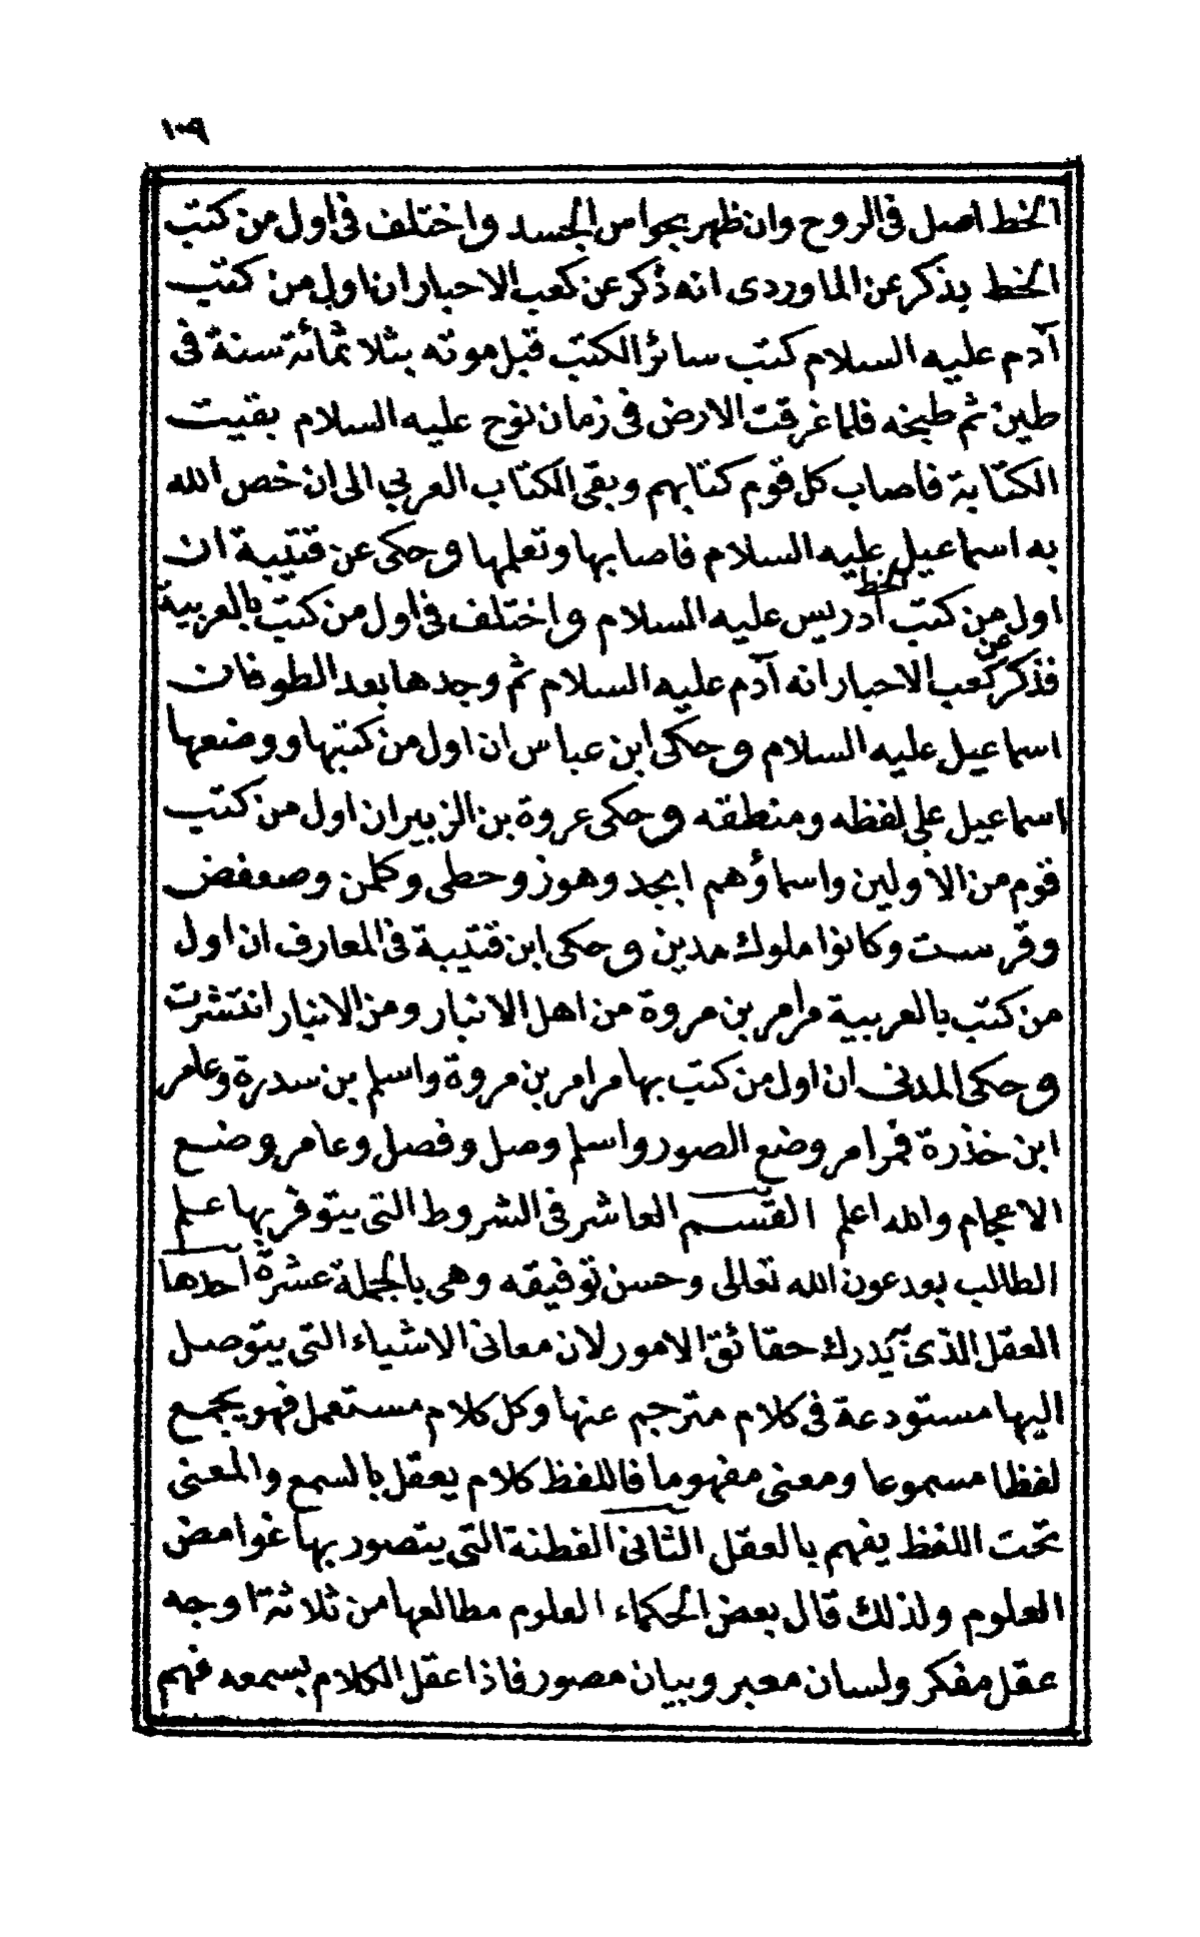 ١٠٩
الخط اصل فى الروح وان ظهر بجواس الجسد واختلف فى اول من كتب
الخط بذكر عن الماوردى انه ذكر عن كعب الاحبار ان اول من كتب
آدم عليه السلام كتب سائر الكتب قبل موته بثلاثمائة سنة فى
طين ثم طبخه فلما غرقت الارض فى زمان نوح عليه السلام بقيت
الكتابة فاصاب كل قوم كتابهم وبقى الكتاب العربي الى ان خص الله
به اسماعيل عليه السلام فاصابها وتعلمها وحكى عن قتيبة ان
اول من كتب الخط ادريس عليه السلام واختلف فى اول من كتب بالعربية
فذكر عن كعب الاحبار انه آدم عليه السلام ثم وجدها بعد الطوفان
اسماعيل عليه السلام وحكى ابن عباس ان اول من كتبها ووضعها
اسماعيل على لفظه ومنطقه وحكى عروة بن الزبير ان اول من كتب
قوم من الاولين واسماؤهم ابجد وهوز وحطى وكلمن وصعفض
وقرست وكانوا ملوك مدين وحكى ابن قتيبة فى المعارف ان اول
من كتب بالعربية مرامر بن مروة من اهل الانبار ومن الانبار انتشرت
وحكى المدنى ان اول من كتب بها مرامر بن مروة واسلم بن سدرة وعامر
ابن خذرة فمرامر وضع الصور واسلم وصل وفصل وعامر وضع
الاعجام والله اعلم القسم العاشر فى الشروط التى يتوفر بها علم
الطالب بود عون الله تعالى وحسن توفيقه وهى بالجملة عشرة احدها
العقل الذى يدرك حقائق الامور لان معانى الاشياء التى يتوصل
اليها مستودعة فى كلام مترجم عنها وكل كلام مستعمل فهو يجمع
لفظا مسموعا ومعنى مفهوما فاللفظ كلام يعقل بالسمع والمعنى
تحت اللفظ يفهم بالعقل الثانى الفطنة التى يتصور بها غوامض
العلوم ولذلك قال بعض الحكماء العلوم مطالعها من ثلاثة اوجه
عقل مفكر ولسان معبر وبيان مصور فاذا عقل الكلام بسمعه فهم